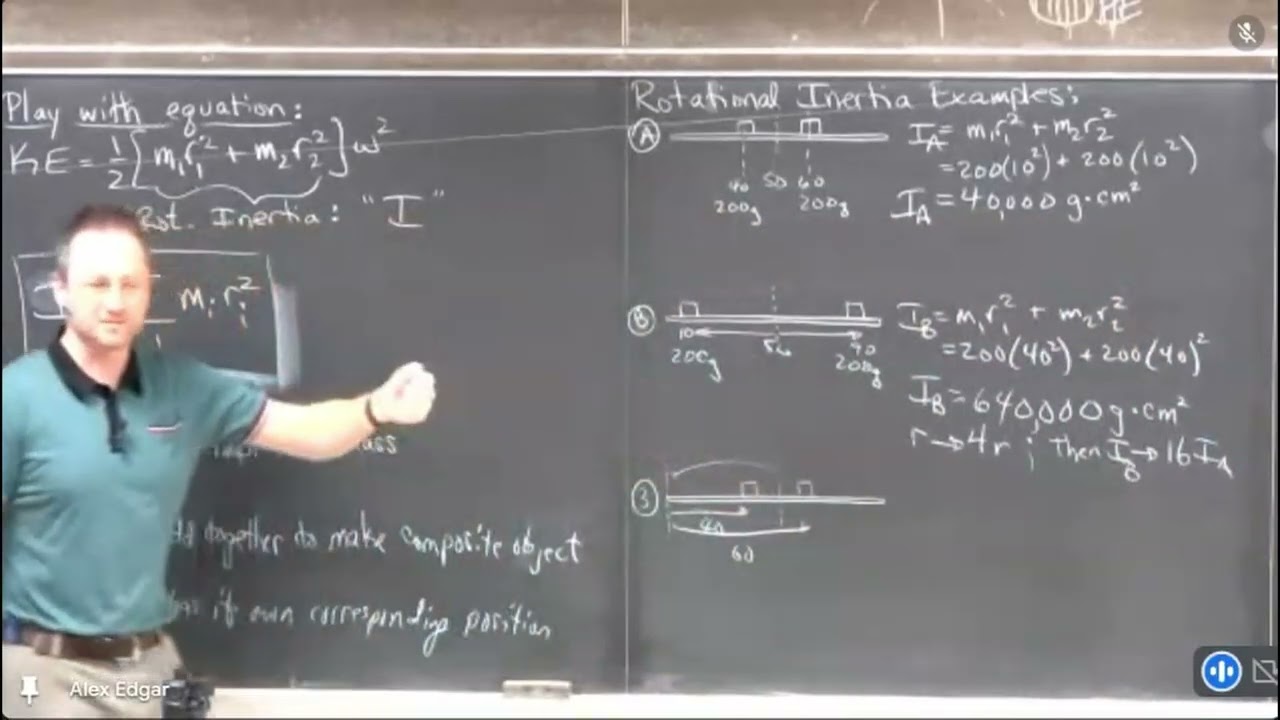 HE
Play with equation:
KE = 1/2 [m₁r₁² + m₂r₂²] ω²
Rot. Inertia: "I"
mᵢ rᵢ²
i
together to make composite object
if own corresponding position
Rotational Inertia Examples:
A
40 50 60
200g 200g
I_A = m₁r₁² + m₂r₂²
= 200(10²) + 200(10²)
I_A = 40,000 g·cm²
B
10 50 90
200g 200g
I_B = m₁r₁² + m₂r₂²
= 200(40²) + 200(40)²
I_B = 640,000 g·cm²
r → 4r ; Then I_B → 16 I_A
3
40
60
Alex Edgar